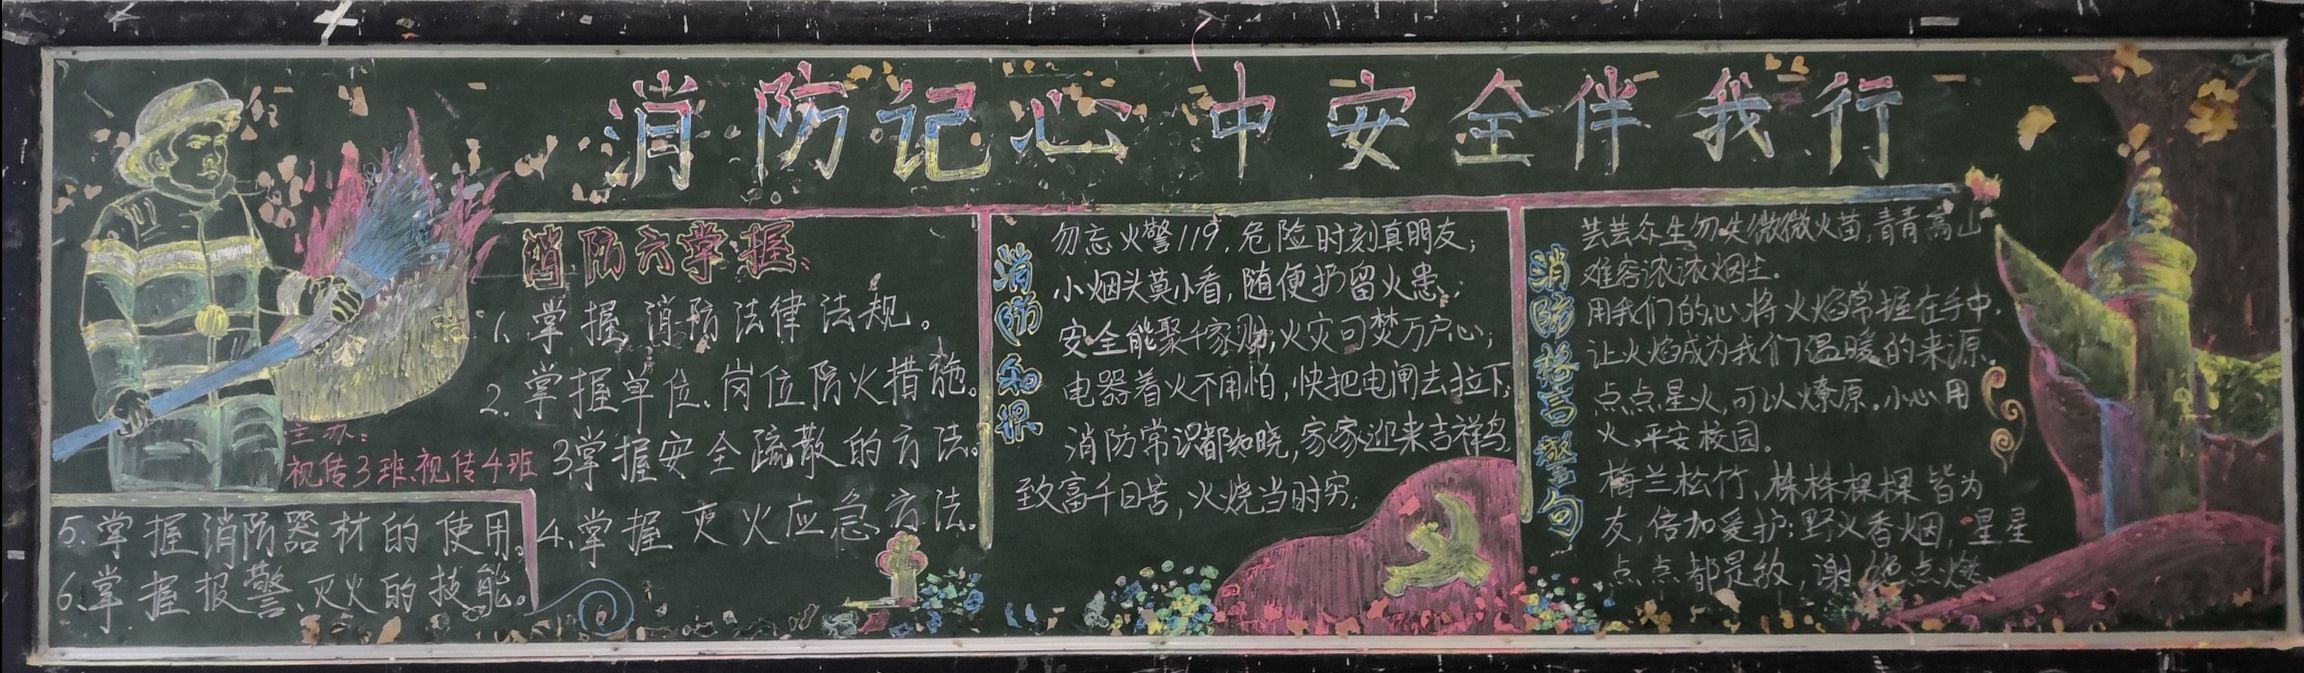 消防记心中安全伴我行
消防六掌握、
1、掌握消防法律法规。
2、掌握单位、岗位防火措施。
3掌握安全疏散的方法。
4、掌握灭火应急方法。
5、掌握消防器材的使用。
6、掌握报警、灭火的技能。
主办：
视传3班、视传4班
消防知识
勿忘火警119，危险时刻真朋友；
小烟头莫小看，随便扔留火患；
安全能聚千家财，火灾可焚万户心；
电器着火不用怕，快把电闸去拉下；
消防常识都知晓，家家迎来吉祥鸟
致富千日苦，火烧当时穷；
消防格言警句
芸芸众生勿失微微火苗，青青高山
难容浓浓烟尘.
用我们的心将火焰掌握在手中.
让火焰成为我们温暖的来源。
点点星火，可以燎原。小心用
火，平安校园。
梅兰松竹、株株棵棵皆为
友，倍加爱护；野火香烟，星星
点点都是敌，谢绝点燃、